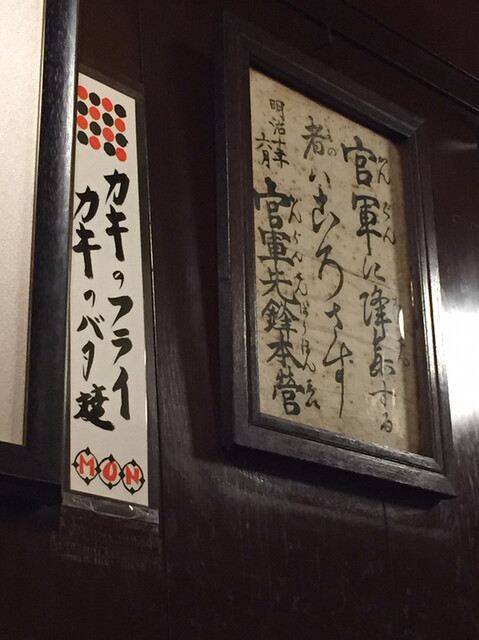 官軍に降参する
者ハころさす
明治十年
六月
官軍先鋒本営
カキのフライ
カキのバタ焼
MON